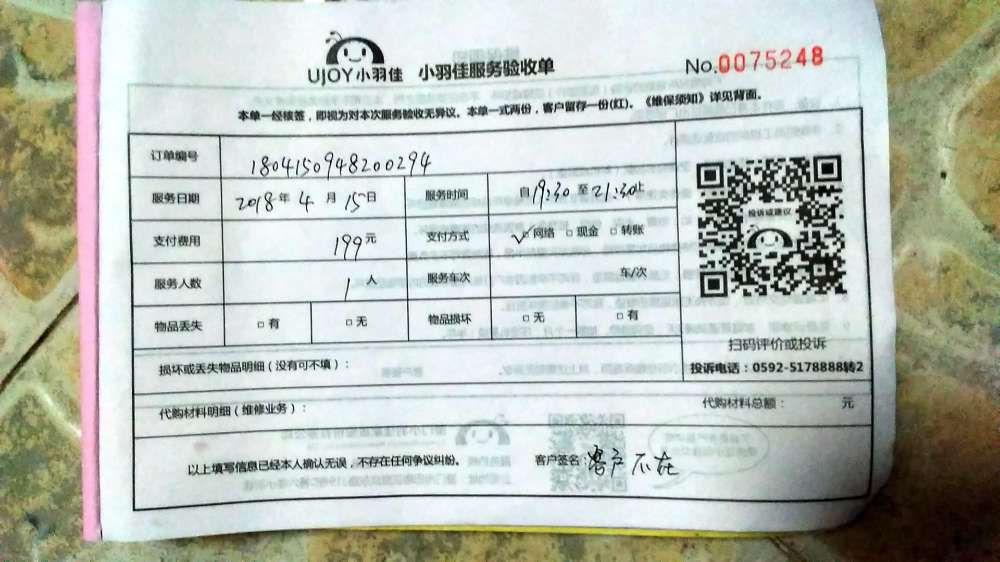 UJOY小羽佳 小羽佳服务验收单 No.0075248
本单一经核签，即视为对本次服务验收无异议。本单一式两份，客户留存一份(红)。《维保须知》详见背面。
订单编号 1804150948200294
服务日期 2018年4月15日 服务时间 自19:30至21:30止
支付费用 199元 支付方式 ✓□网络 □现金 □转账
服务人数 1人 服务车次 车/次
物品丢失 □有 □无 物品损坏 □无 □有
投诉或建议
扫码评价或投诉
投诉电话：0592-5178888转2
损坏或丢失物品明细（没有可不填）：
代购材料明细（维修业务）： 代购材料总额： 元
以上填写信息已经本人确认无误，不存在任何争议纠纷。 客户签名：客户不在